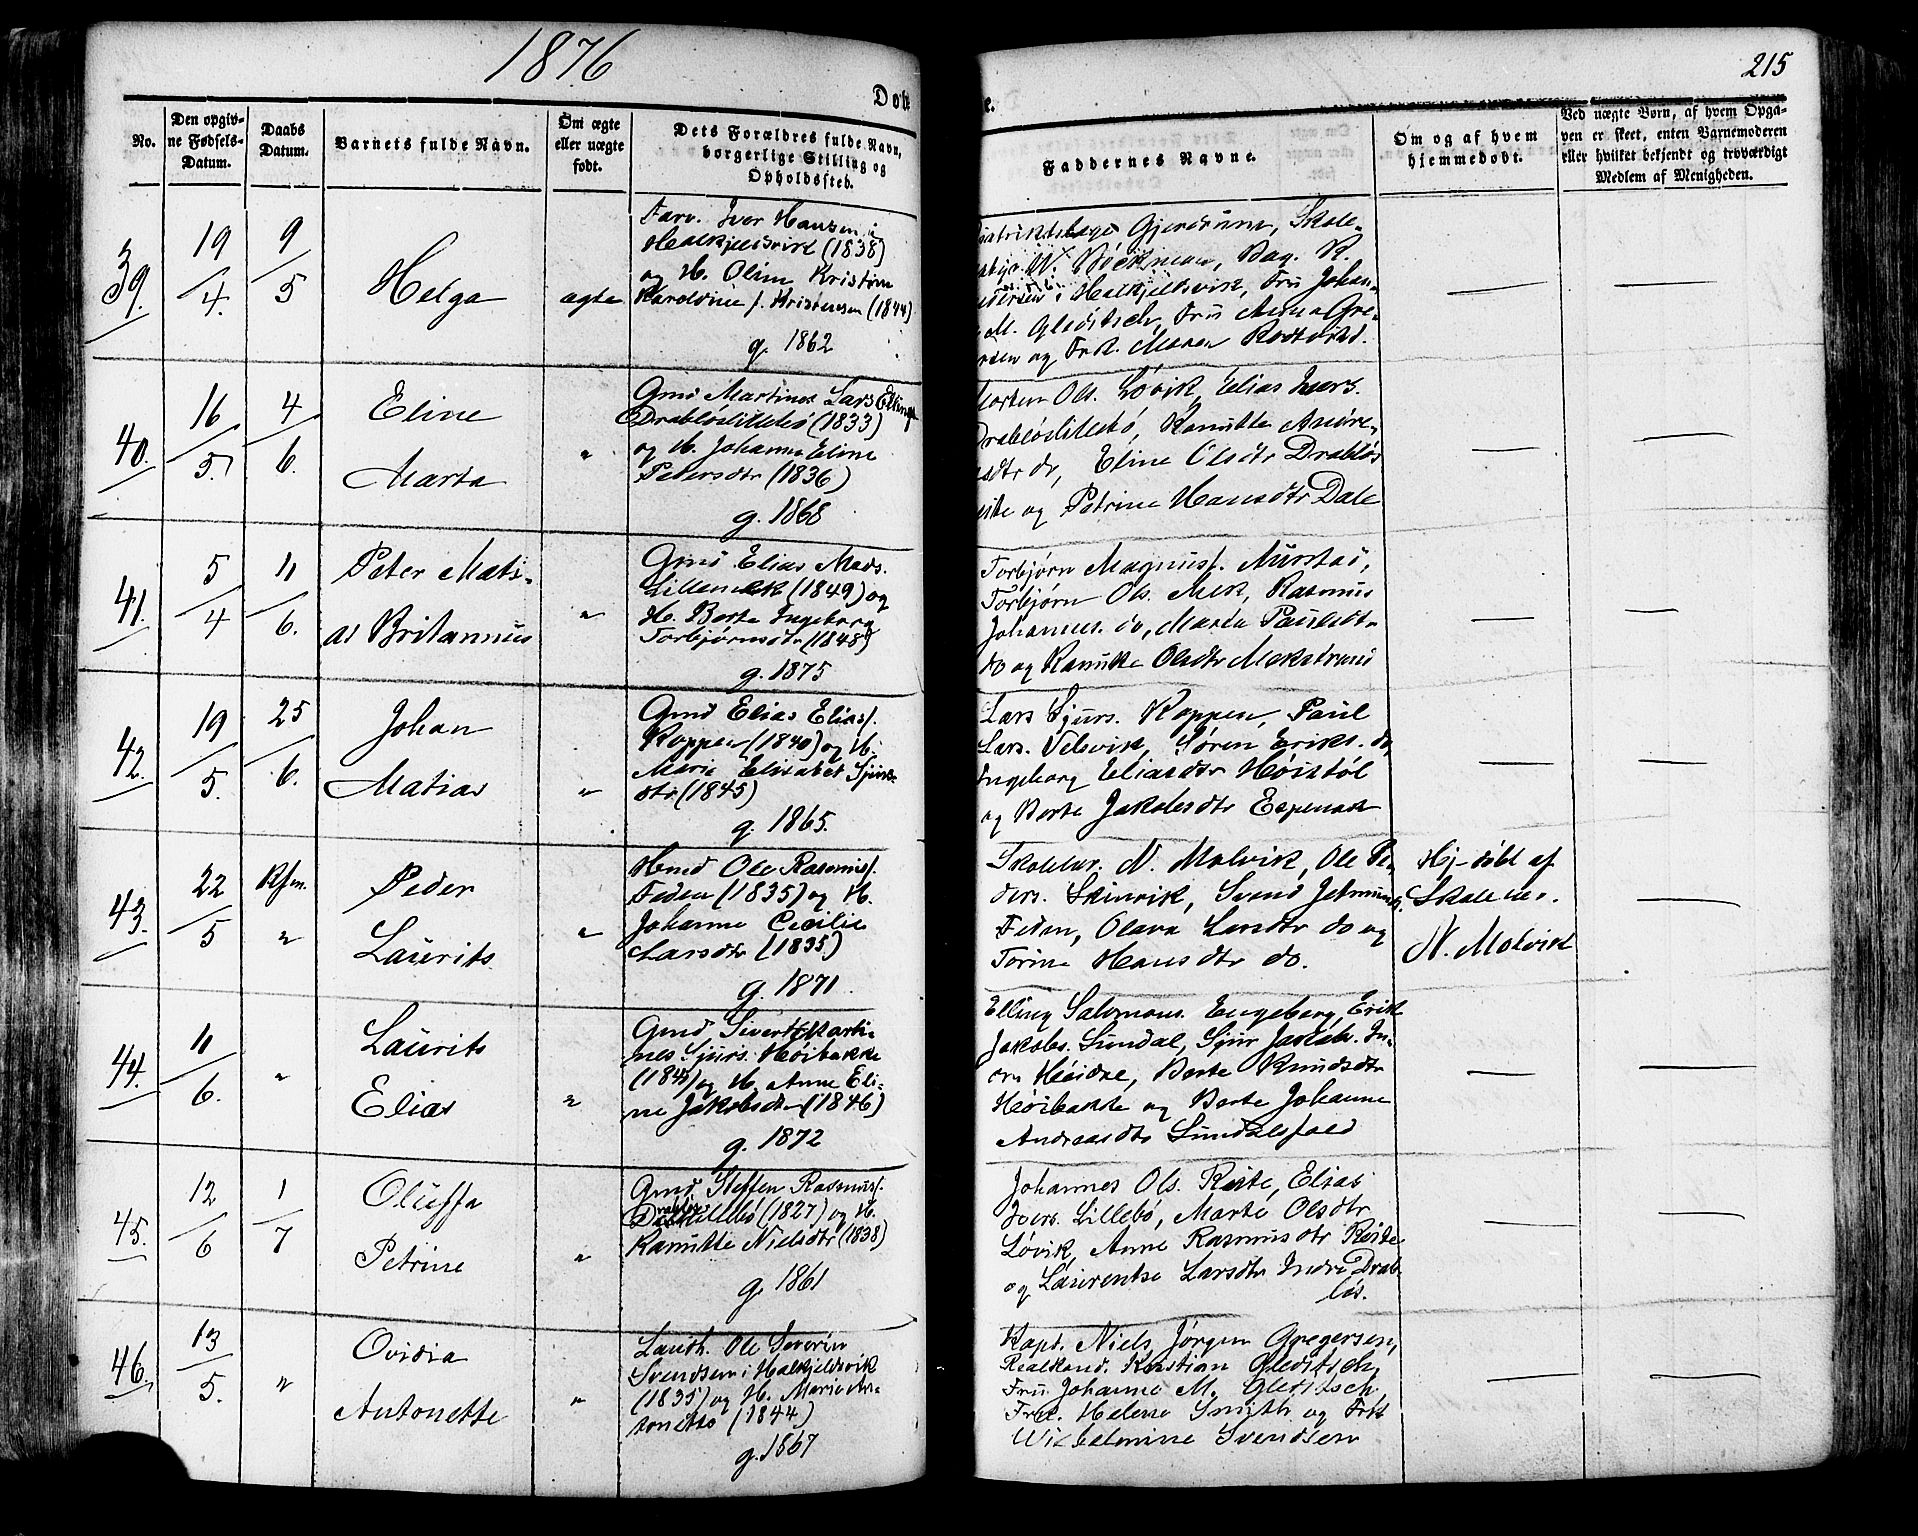 1876
215
Døbte.
No.
Den opgiv-
ne Fødsels-
Datum.
Daabs
Datum.
Barnets fulde Navn.
Om ægte
eller uægte
født.
Dets Forældres fulde Navn,
borgerlige Stilling og
Opholdssted.
Faddernes Navne.
Om og af hvem
hjemmedøbt.
Ved uægte Børn, af hvem Opga-
ven er skeet, enten Barnemoderen
eller hvilket bekjendt og troværdigt
Medlem af Menigheden.
39.
19/4.
9/5
Helga
ægte
Farv. Iver Hansen i
Halkjelsvik (1838)
og H. Oline Kristine
Karoline f. Kristensen (1844)
g. 1862
Distriktslæge Gjerdrum, Skole-
W. Böckman, Bag. R.
Pedersen i Halkjeldsvik, Fru Johan-
M. Gleditsch, Fru Anna Gre-
gersen og Frk. Maren Rodtvitd.
—
—
40.
16/5.
4/6.
Eline
Marta
"
Gmd Martinus Lars Ellings
Drabløslillebø (1833)
og H. Johanne Eline
Petersdtr (1836)
g. 1868
Morten Ols. Løvik, Elias Ivers.
Drabløslillebø, Kanutte Andre-
asdtr do, Eline Olsdtr Drabløs
og Petrine Hansdtr Dale
—
—
41.
5/4
11/6.
Peter Mati-
as Britannus
"
Gmd Elias Mads.
Lillemek (1849) og
H. Berte Ingeborg
Torbjørnsdtr (1848)
g. 1875
Torbjørn Magnusf. Aurstad,
Torbjørn Ols. Mek, Rasmus
Johannes. do, Marta Paulsdtr
do og Kanutte Olsdtr Mekstrand
—
—
42.
19/5.
25/6.
Johan
Matias
"
Gmd Elias Eliasf.
Koppen (1840) og H.
Marie Elisabet Sjurs-
dtr (1845)
g. 1865.
Lars Sjurs. Koppen, Paul
Lars. Velsvik, Søren Eriks. do
Ingeborg Eliasdtr Høistøl
og Berte Jakobsdtr Espenak
—
—
43.
22/5
Kfm.
"
Peder
Laurits
"
Hmd Ole Rasmusf.
Feden (1835) og H.
Johanne Cecilie
Larsdtr (1835)
g. 1871
Skolelær. N. Molvik, Ole Pe-
ders. Skinvik, Svend Jetmunds.
Feden, Olava Larsdtr do og
Torine Hansdtr do.
Hj-døbt af
Skolelær.
N. Molvik
—
44.
11/6.
"
Laurits
Elias
"
Gmd Sivert Marti-
nes Sjurs. Høibakke
(1845) og H. Anne Eli-
ne Jakobsdtr (1846)
g. 1872
Elling Salomons. Engeberg, Erik
Jakobs. Sundal, Sjur Jakobs. In-
dre Høidal, Berte Knudsdtr
Høibakke og Berte Johanne
Andreasdtr Sundalsfald
—
—
45.
12/6
1/7
Oluffa
Petrine
"
Gmd Steffen Rasmusf.
Drabløs-
lillebø (1827) og H.
Kanutte Nielsdtr (1838)
g. 1861
Johannes Ols. Reite, Elias
Ivers. Lillebø, Marte Olsdtr
Løvik, Anne Rasmusdtr Reite
og Laurentse Larsdtr Indre Drab-
løs.
—
—
46.
13/5.
"
Ovidia
Antonette
"
Landh. Ole Severin
Svendsen i Halkjeldsvik
(1835) og H. Marie An-
tonette (1844)
g. 1867
Kapt. Niels Jørgen Gregersen,
Realkand. Kristian Gleditsch,
Fru Johanne M. Gleditsch,
Frk. Helene Smith og Frk
Wilhelmine Svendsen
—
—